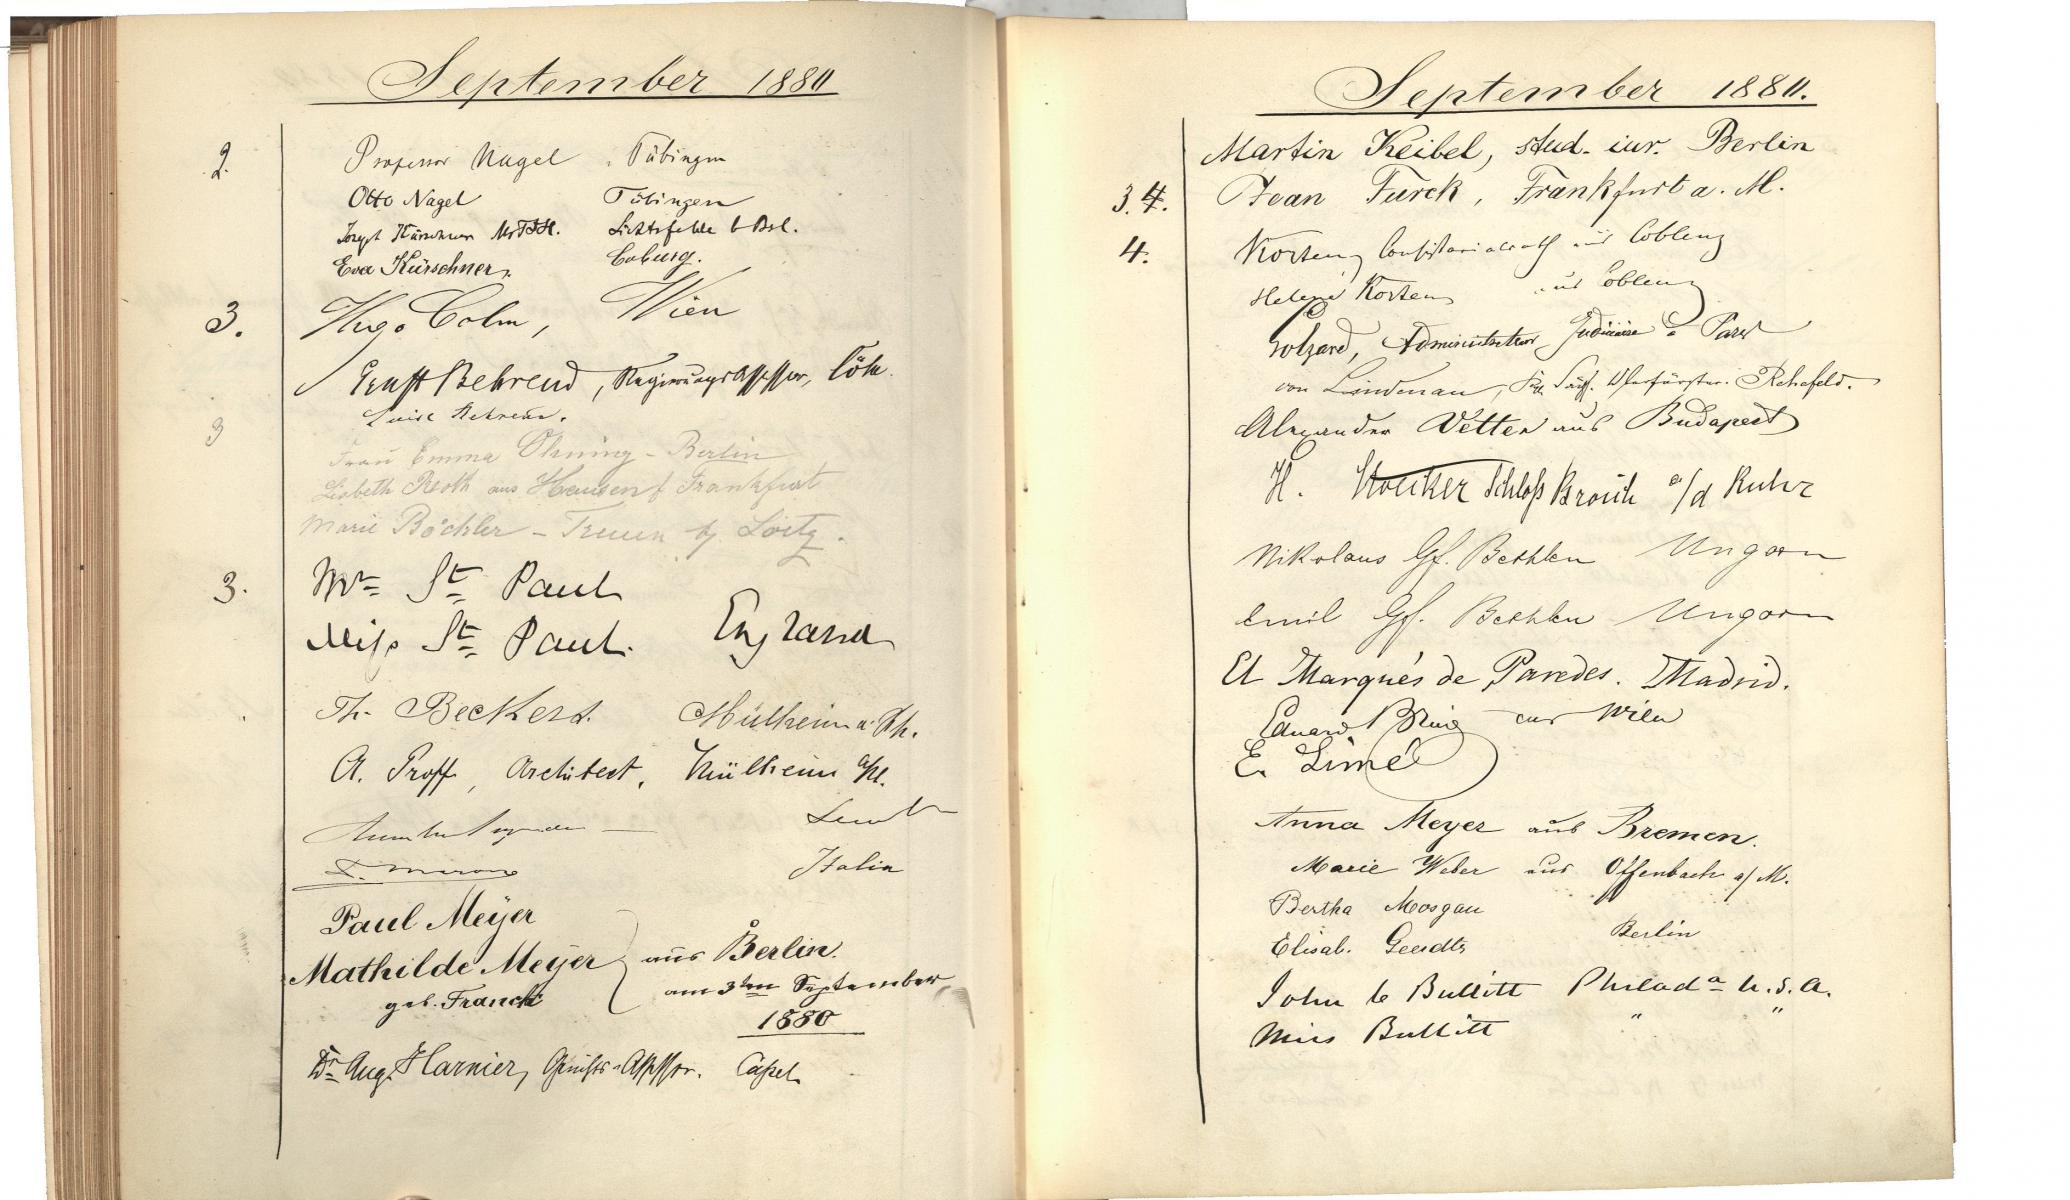 September 1880
2. Professor Nagel, Tübingen
Otto Nagel Tübingen
Joseph Kürschner Lichterfelde b Brl.
Eva Kürschner, Coburg.
3. Hugo Colm, Wien
Ernst Behrend, Regierungs Assessor, Cöln.
Luise Behrend.
3 Frau Emma - Berlin
Lisbeth Roth aus Hausen / Frankfurt
Marie Böckler - Treuen b/ Loitz.
3. Mrs St Paul
Miss St Paul. England
Th. Beckers. Mülheim a. Rh.
A. Proff, Architect, Mülheim a/Rh.
Italia
Paul Meÿer
Mathilde Meÿer aus Berlin.
geb. Franck am 3ten September
1880
Dr Aug. Harnier, Gerichts-Assessor. Cassel
September 1880.
Martin Keibel, stud. iur. Berlin
3.4. Jean Turck, Frankfurt a. M.
4. Korten, Consistorialrath aus Coblenz
Helene Korten aus Coblenz
Administrateur Judiciaire à Paris
von Lindenau, Kgl. Sächs. Oberförster. Rehefeld.
Alexander Vetter aus Budapest
H. Schloß Broich a/d Ruhr
Nikolaus Gf. Bethlen Ungarn
Emil Gf. Bethlen Ungarn
El Marqués de Paredes. Madrid.
Eduard aus Wien
E. Simé
Anna Meyer aus Bremen.
Marie Weber aus Offenbach a/M.
Bertha Mosgau
Elisab. Berlin
John C Bullitt Philada U.S.A.
Miss Bullitt " "